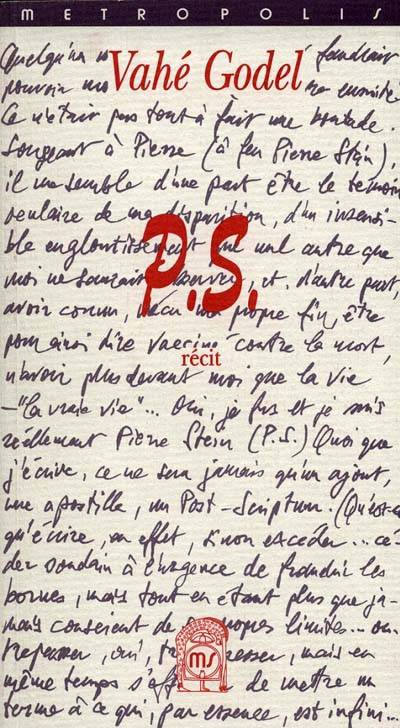 METROPOLIS
Quelqu'un faudrait
Vahé Godel
pouvoir ensuite
Ce n'était pas tout à fait une boutade.
Songeant à Pierre (à feu Pierre Stein),
il me semble d'une part être le témoin
oculaire de ma disparition, d'un insensi-
ble engloutissement que nul autre que
moi ne saurait et, d'autre part,
P.S.
avoir connu, vécu ma propre fin, être
pour ainsi dire vacciné contre la mort,
récit
n'avoir plus devant moi que la vie
– "la vraie vie"... Oui, je fus et je suis
réellement Pierre Stein (P.S.) Quoi que
j'écrive, ce ne sera jamais qu'un ajout,
une apostille, un Post-Scriptum. (Qu'est-ce
qu'écrire, en effet, sinon excéder... cé-
der soudain à l'urgence de franchir les
bornes, mais tout en étant plus que ja-
mais conscient de propres limites... ou
trépasser, oui, mais en
MS
même temps de mettre un
terme à ce qui, par essence, est infini...